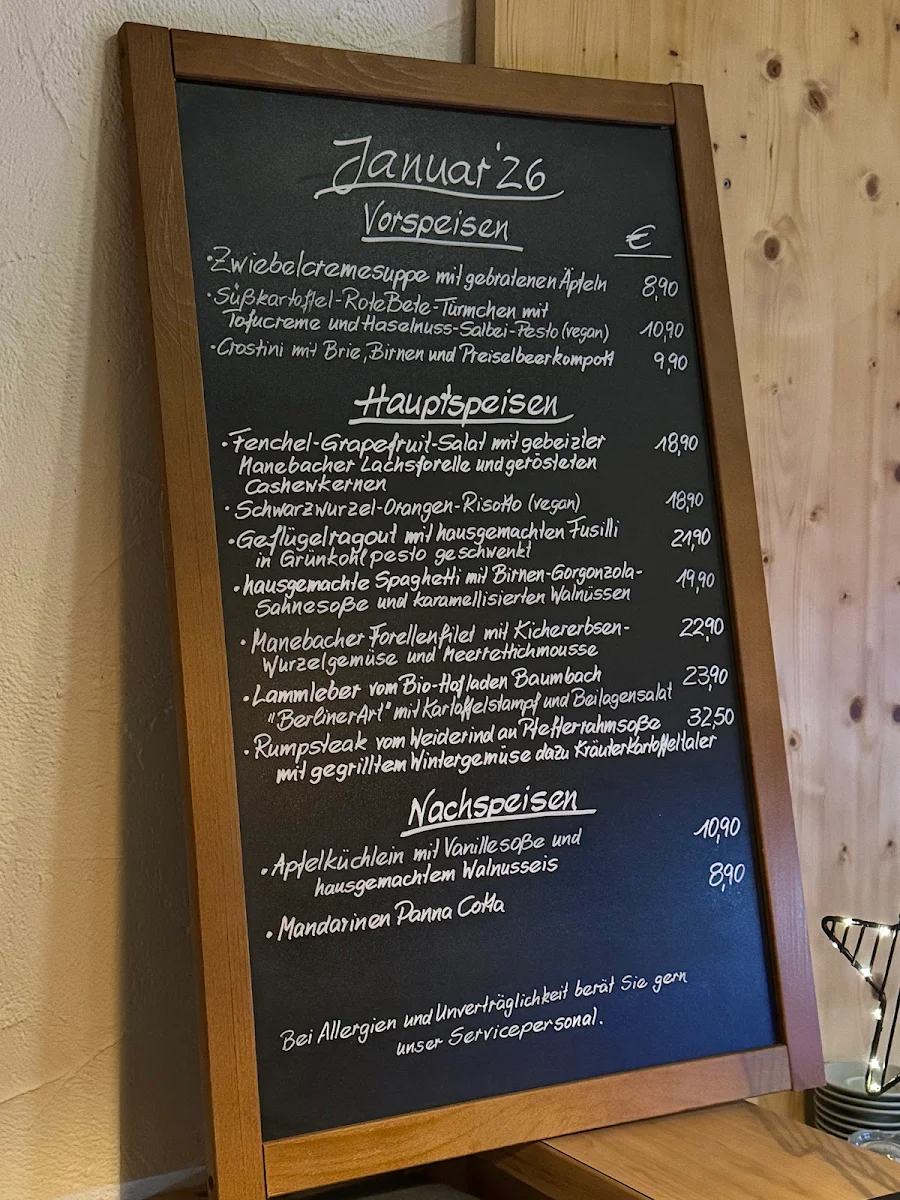 Januar '26
Vorspeisen
€
• Zwiebelcremesuppe mit gebratenen Äpfeln 8,90
• Süßkartoffel-Rote Bete-Türmchen mit
Tofucreme und Haselnuss-Salbei-Pesto (vegan) 10,90
• Crostini mit Brie, Birnen und Preiselbeerkompott 9,90
Hauptspeisen
• Fenchel-Grapefruit-Salat mit gebeizter 18,90
Manebacher Lachsforelle und gerösteten
Cashewkernen
• Schwarzwurzel-Orangen-Risotto (vegan) 18,90
• Geflügelragout mit hausgemachten Fusilli 21,90
in Grünkohlpesto geschwenkt
• hausgemachte Spaghetti mit Birnen-Gorgonzola- 19,90
Sahnesoße und karamellisierten Walnüssen
• Manebacher Forellenfilet mit Kichererbsen- 22,90
Wurzelgemüse und Meerrettichmousse
• Lammleber vom Bio-Hofladen Baumbach 23,90
"Berliner Art" mit Kartoffelstampf und Beilagensalat
• Rumpsteak vom Weiderind an Pfefferrahmsoße 32,50
mit gegrilltem Wintergemüse dazu Kräuterkartoffeltaler
Nachspeisen
• Apfelküchlein mit Vanillesoße und 10,90
hausgemachtem Walnusseis
• Mandarinen Panna Cotta 8,90
Bei Allergien und Unverträglichkeit berät Sie gern
unser Servicepersonal.